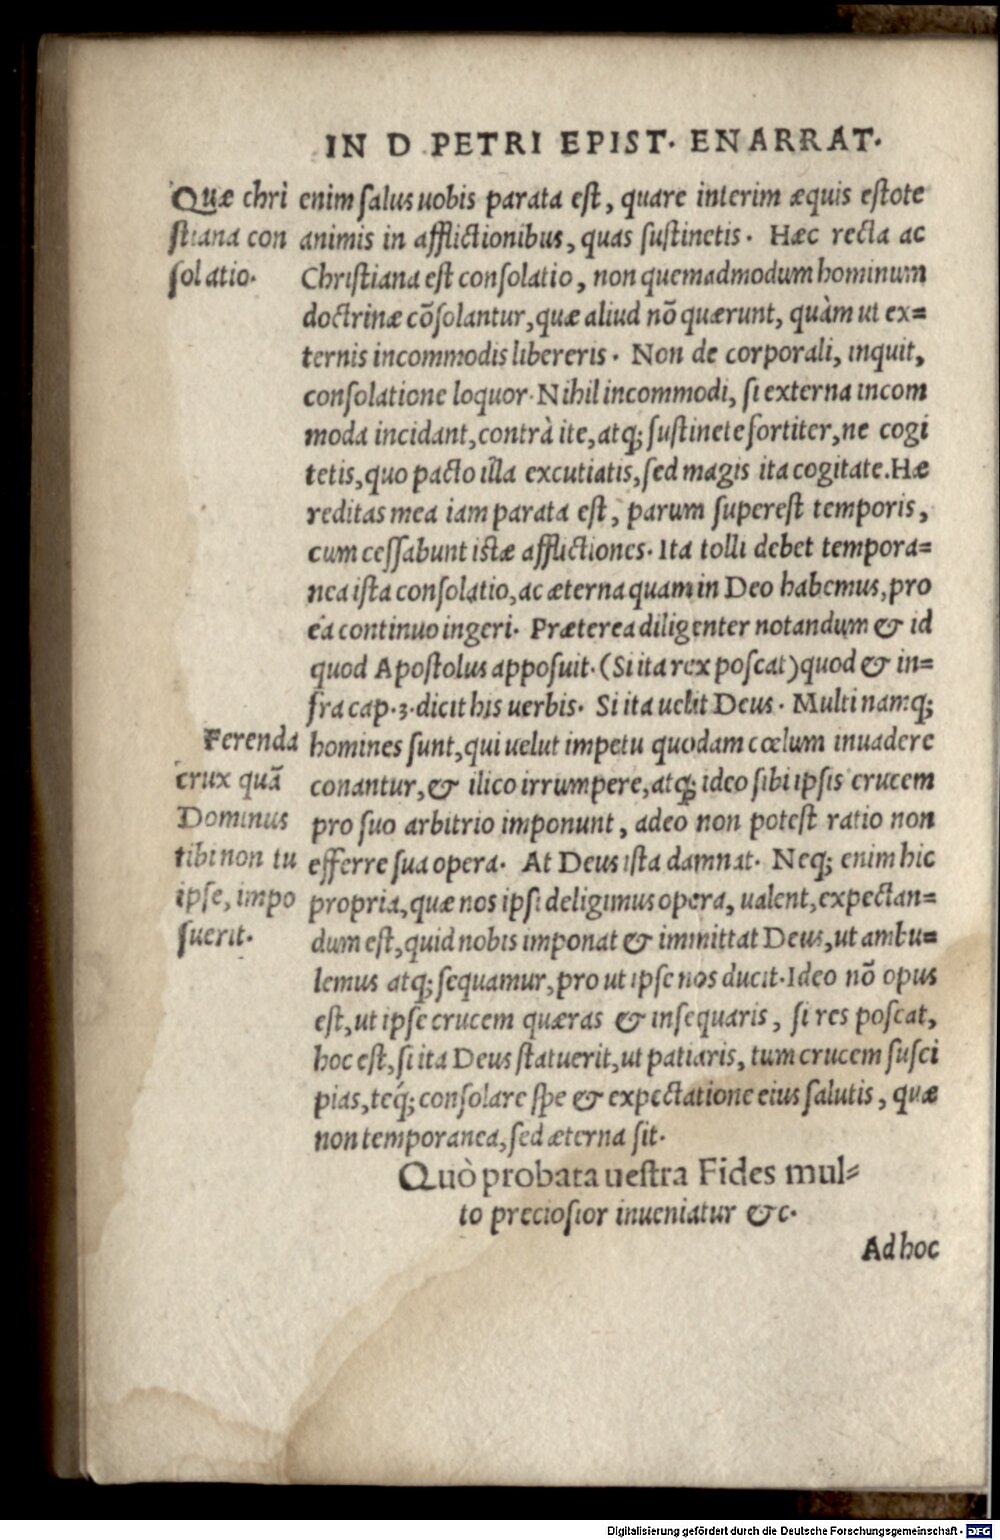 IN D PETRI EPIST. ENARRAT.
Quæ chri
stiana con
solatio.
enim salus uobis parata est, quare interim æquis estote
animis in afflictionibus, quas sustinetis. Hæc recta ac
Christiana est consolatio, non quemadmodum hominum
doctrinæ cõsolantur, quæ aliud nõ quærunt, quàm ut ex=
ternis incommodis libereris. Non de corporali, inquit,
consolatione loquor. Nihil incommodi, si externa incom
moda incidant, contrà ite, atq; sustinete fortiter, ne cogi
tetis, quo pacto illa excutiatis, sed magis ita cogitate. Hæ
reditas mea iam parata est, parum superest temporis,
cum cessabunt istæ afflictiones. Ita tolli debet tempora=
nea ista consolatio, ac æterna quam in Deo habemus, pro
ea continuo ingeri. Præterea diligenter notandum & id
quod Apostolus apposuit. (Si ita rex poscat) quod & in=
fra cap. 3. dicit his uerbis. Si ita uelit Deus. Multi namq;
homines sunt, qui uelut impetu quodam cœlum inuadere
conantur, & ilico irrumpere, atq; ideo sibi ipsis crucem
pro suo arbitrio imponunt, adeo non potest ratio non
efferre sua opera. At Deus ista damnat. Neq; enim hic
propria, quæ nos ipsi deligimus opera, ualent, expectan=
dum est, quid nobis imponat & immittat Deus, ut ambu=
lemus atq; sequamur, pro ut ipse nos ducit. Ideo nõ opus
est, ut ipse crucem quæras & insequaris, si res poscat,
hoc est, si ita Deus statuerit, ut patiaris, tum crucem susci
pias, teq́; consolare spe & expectatione eius salutis, quæ
non temporanea, sed æterna sit.
Ferenda
crux quã
Dominus
tibi non tu
ipse, impo
suerit.
Quò probata uestra Fides mul=
to preciosior inueniatur &c.
Ad hoc
Digitalisierung gefördert durch die Deutsche Forschungsgemeinschaft - DFG